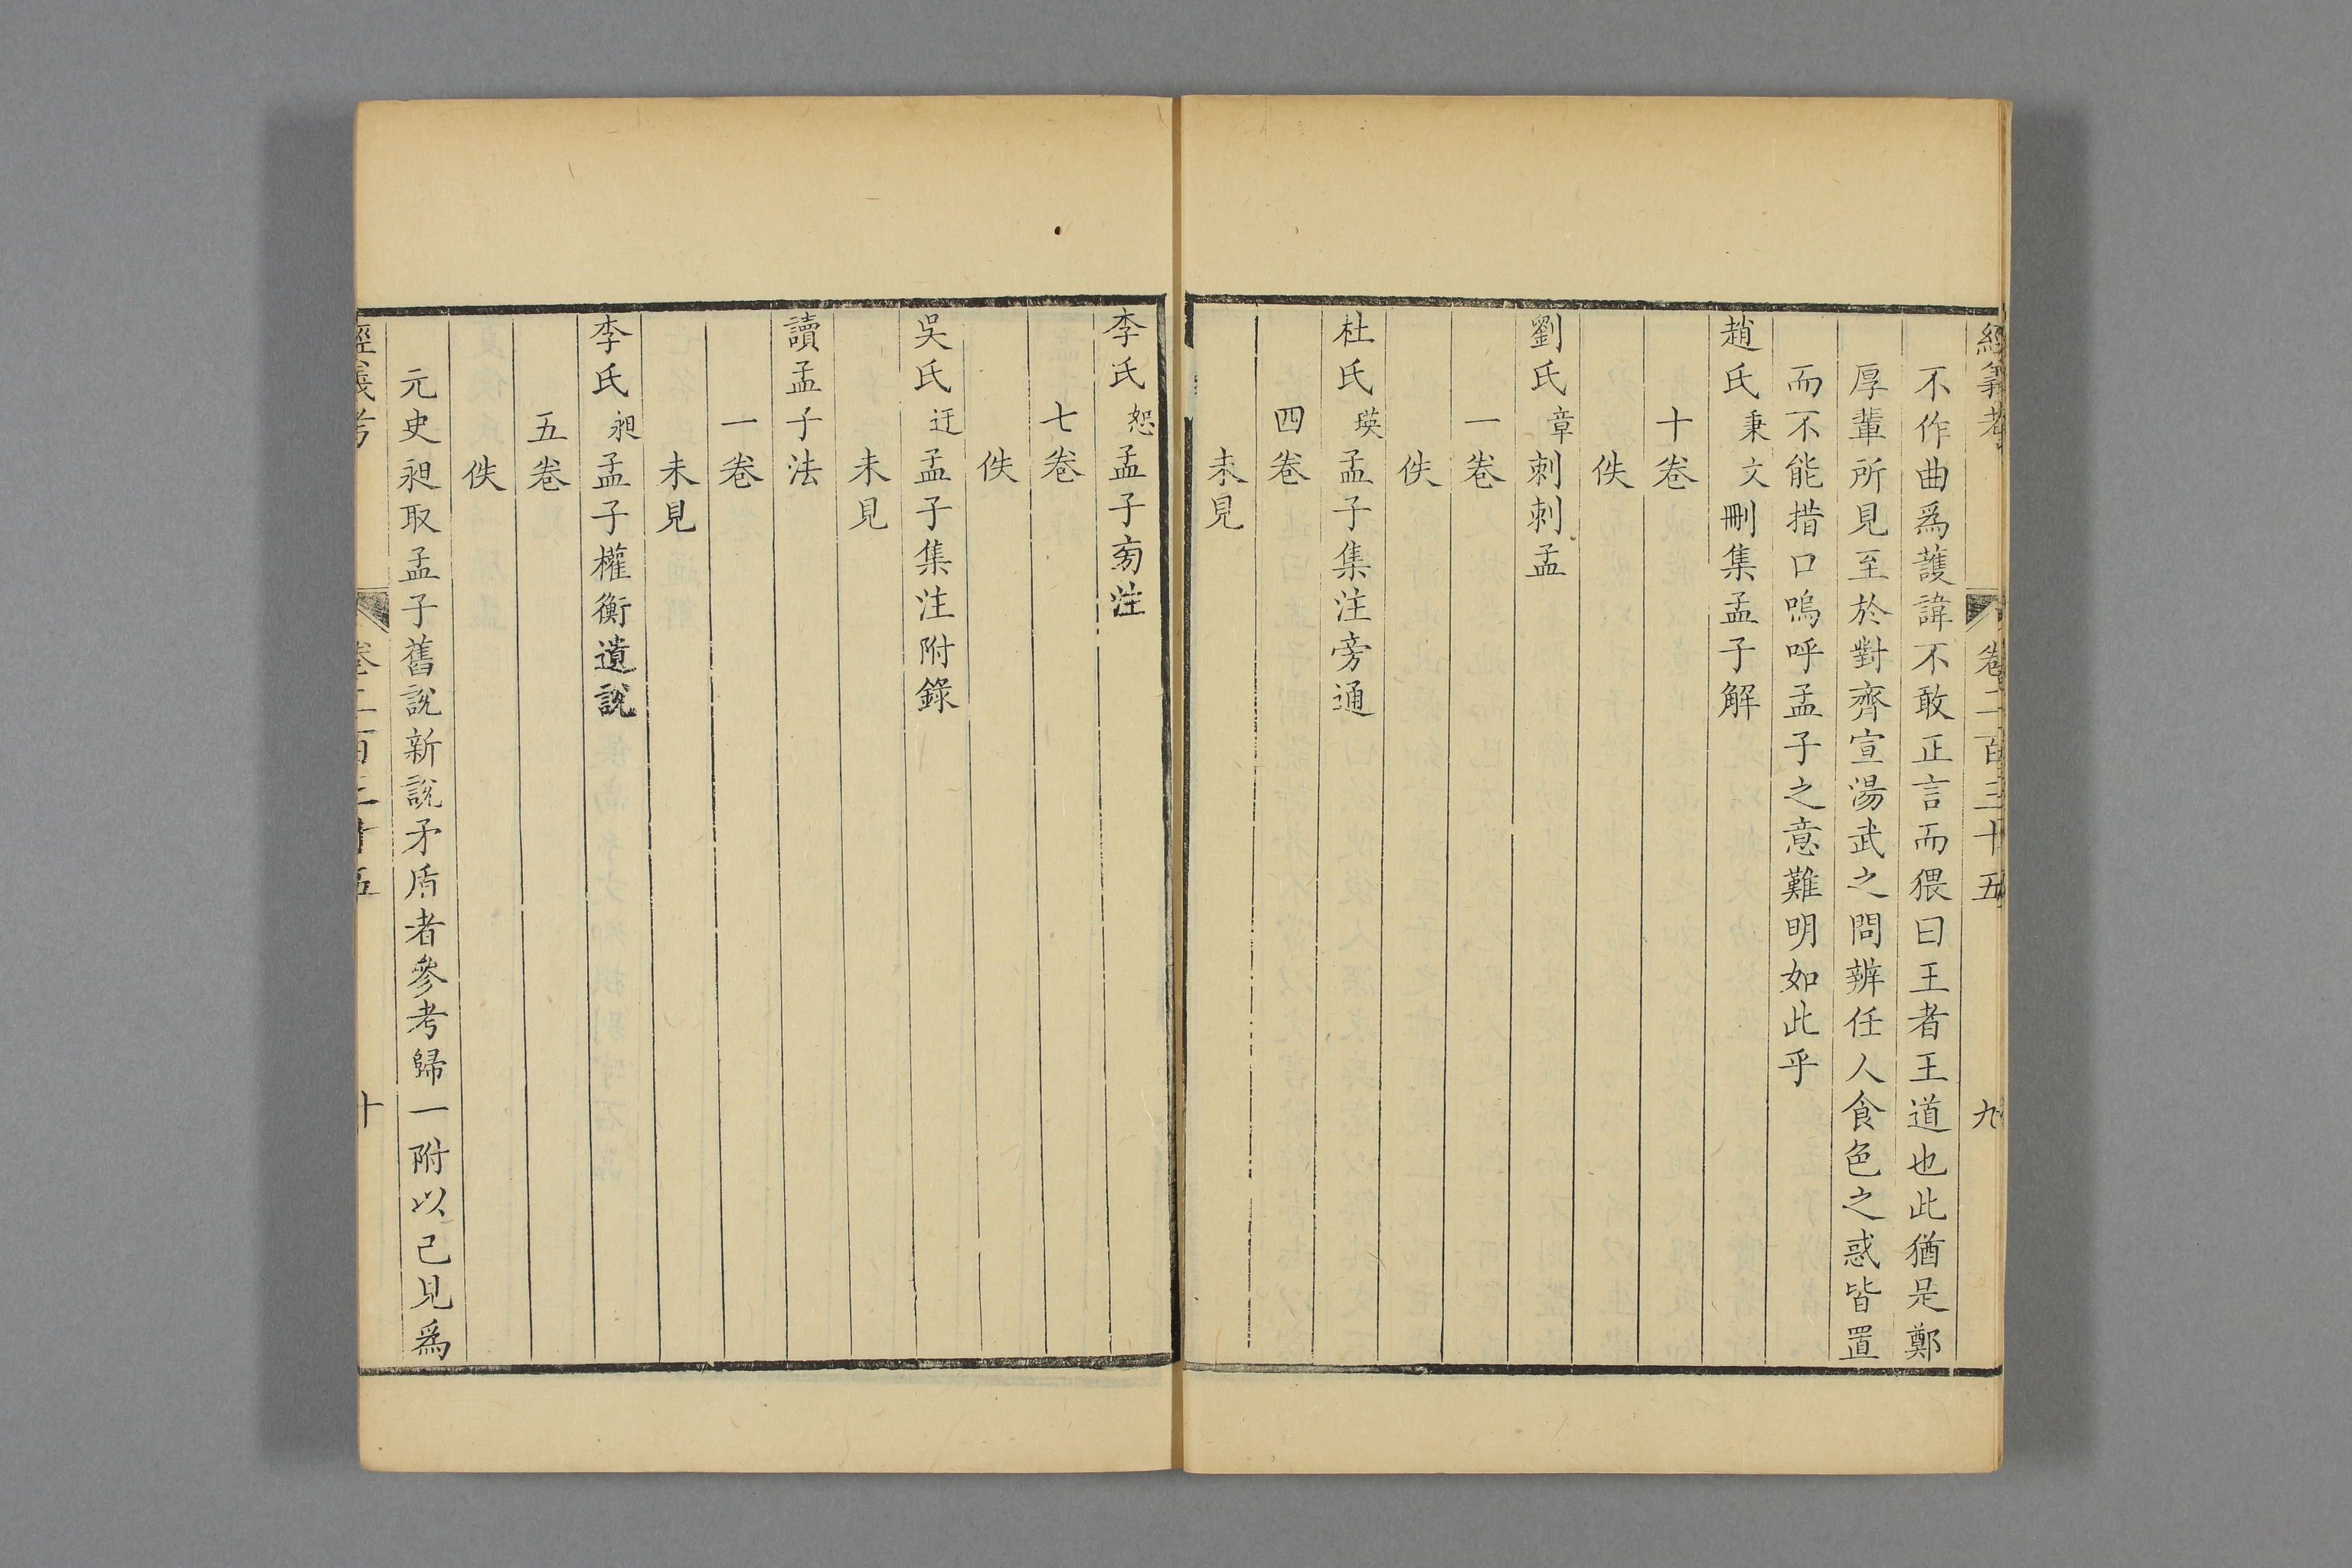 經義考 卷二百三十五 九
不作曲爲護諱不敢正言而猥曰王者王道也此猶是鄭
厚輩所見至於對齊宣湯武之問辨任人食色之惑皆置
而不能措口嗚呼孟子之意難明如此乎
趙氏秉文刪集孟子解
十卷
佚
劉氏章刺刺孟
一卷
佚
杜氏瑛孟子集注旁通
四卷
未見
李氏恕孟子㫄注
七卷
佚
吳氏迂孟子集注附錄
未見
讀孟子法
一卷
未見
李氏昶孟子權衡遺說
五卷
佚
元史昶取孟子舊說新說矛盾者參考歸一附以己見爲
經義考 卷二百三十五 十